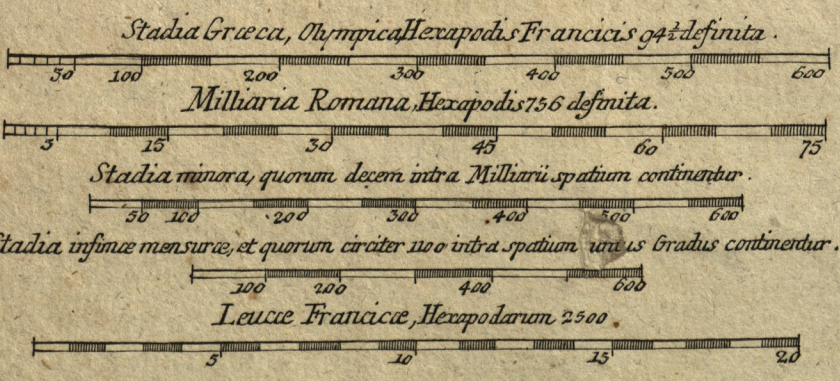 Stadia Græca, Olympica, Hexapodis Francicis 94½ definita.
50 100 200 300 400 500 600
Milliaria Romana, Hexapodis 756 definita.
5 15 30 45 60 75
Stadia minora, quorum decem intra Milliarii spatium continentur.
50 100 200 300 400 500 600
Stadia infimæ mensuræ, et quorum circiter 1100 intra spatium unius Gradus continentur.
100 200 400 600
Leucæ Francicæ, Hexapodarum 2500
5 10 15 20